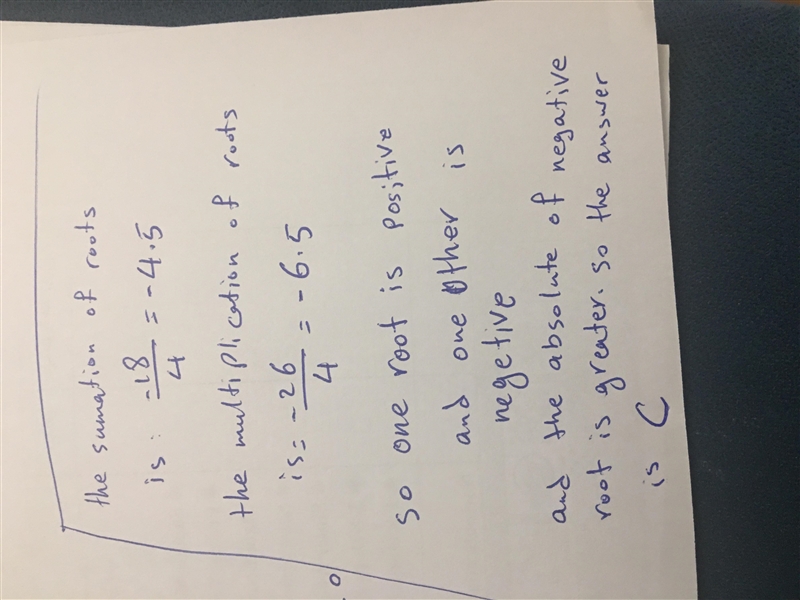 the sumation of roots
is: -18/4 = -4.5
the multiplication of roots
is = -26/4 = -6.5
so one root is positive
and one other is
negetive
and the absolute of negative
root is greater. so the answer
is C